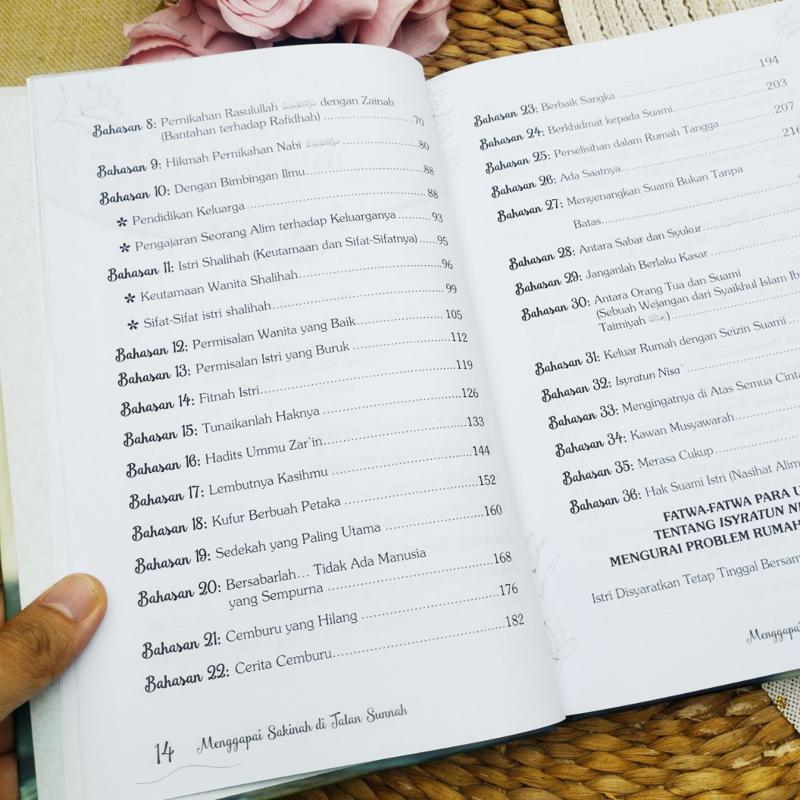 Bahasan 8: Pernikahan Rasulullah dengan Zainab
(Bantahan terhadap Rafidhah) 70
Bahasan 9: Hikmah Pernikahan Nabi 80
Bahasan 10: Dengan Bimbingan Ilmu 88
✲ Pendidikan Keluarga 88
✲ Pengajaran Seorang Alim terhadap Keluarganya 93
Bahasan 11: Istri Shalihah (Keutamaan dan Sifat-Sifatnya) 95
✲ Keutamaan Wanita Shalihah 96
✲ Sifat-Sifat istri shalihah 99
Bahasan 12: Permisalan Wanita yang Baik 105
Bahasan 13: Permisalan Istri yang Buruk 112
Bahasan 14: Fitnah Istri 119
Bahasan 15: Tunaikanlah Haknya 126
Bahasan 16: Hadits Ummu Zar'in 133
Bahasan 17: Lembutnya Kasihmu 144
Bahasan 18: Kufur Berbuah Petaka 152
Bahasan 19: Sedekah yang Paling Utama 160
Bahasan 20: Bersabarlah... Tidak Ada Manusia
yang Sempurna 168
Bahasan 21: Cemburu yang Hilang 176
Bahasan 22: Cerita Cemburu 182
14 Menggapai Sakinah di Jalan Sunnah
Bahasan 23: Berbaik Sangka 194
Bahasan 24: Berkhidmat kepada Suami 203
Bahasan 25: Perselisihan dalam Rumah Tangga 207
Bahasan 26: Ada Saatnya 216
Bahasan 27: Menyenangkan Suami Bukan Tanpa
Batas
Bahasan 28: Antara Sabar dan Syukur
Bahasan 29: Janganlah Berlaku Kasar
Bahasan 30: Antara Orang Tua dan Suami
(Sebuah Wejangan dari Syaikhul Islam Ib
Taimiyah )
Bahasan 31: Keluar Rumah dengan Seizin Suami
Bahasan 32: Isyratun Nisa'
Bahasan 33: Mengingatnya di Atas Semua Cinta
Bahasan 34: Kawan Musyawarah
Bahasan 35: Merasa Cukup
Bahasan 36: Hak Suami Istri (Nasihat Alim
FATWA-FATWA PARA U
TENTANG ISYRATUN NI
MENGURAI PROBLEM RUMAH
Istri Disyaratkan Tetap Tinggal Bersam
Menggapai